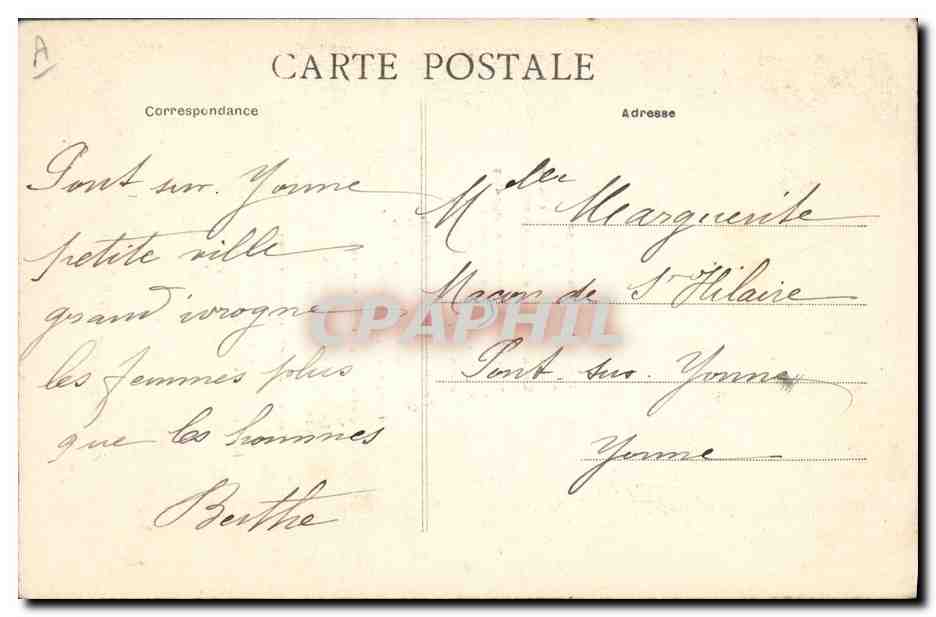 A
CARTE POSTALE
Correspondance
Pont sur Yonne
petite ville
grand ivrogne
les femmes plus
que les hommes
Berthe
Adresse
Mdelle Marguerite
Maçon de St Hilaire
Pont-sur-Yonne
Yonne
CPAPHIL